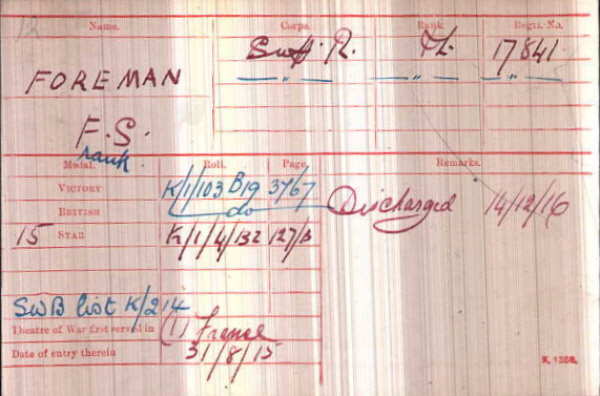 Name. Corps. Rank. Regtl. No.
FOREMAN Suff. R. 17841
— " — — " — — " —
F.S.
rank.
Medal. Roll. Page. Remarks.
VICTORY K/1/103 B19 3767
BRITISH do Discharged 14/12/16
15 STAR K/1/4/B2 127/B
SWB list K/2 14
Theatre of War first served in (1) France
Date of entry therein 31/8/15
K. 1386.